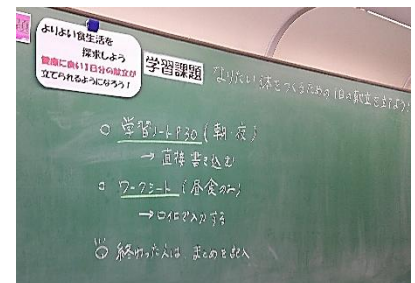 よりよい食生活を
探求しよう
健康に良い1日分の献立が
立てられるようになろう！
学習課題
よりよい体をつくるための1日の献立を立てよう
○ 学習ノートP30（朝・夜）
→ 直接書き込む
○ ワークシート（昼食のみ）
→ ロイロで入力する
終わった人は、まとめを記入